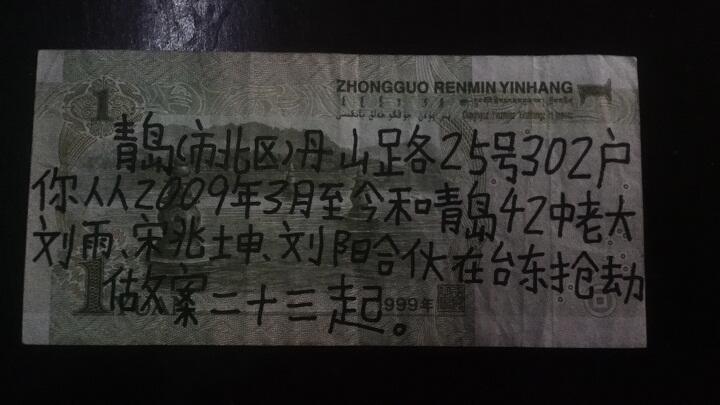 ZHONGGUO RENMIN YINHANG
1
青岛(市北区)丹山路各25号302户
你从从2009年3月至今和青岛42中老大
刘雨、宋兆坤、刘阳合伙在台东抢劫
做案二十三起。
1
1999年